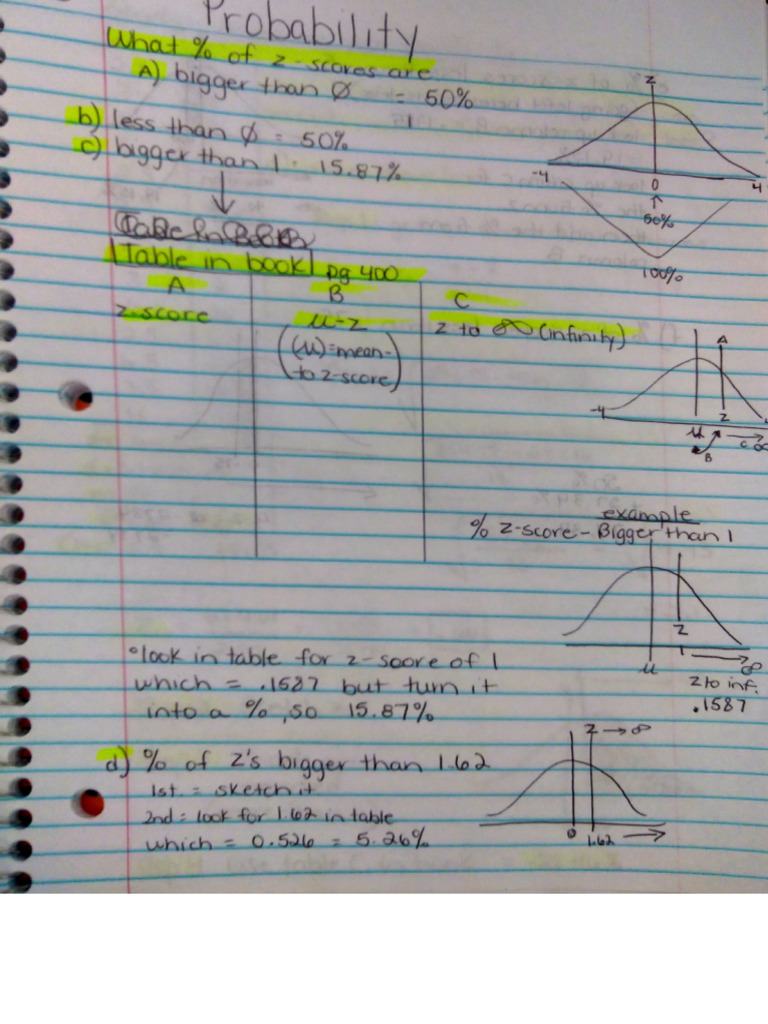 Probability
What % of z-scores are
A) bigger than Ø = 50%
b) less than Ø = 50%
c) bigger than 1 = 15.87%
z
-4
0
4
↑
50%
100%
Table in book pg 400
A
z-score
B
μ-z
(μ)=mean-
to z-score)
C
z to ∞ (infinity)
A
-4
z
μ
B
C ∞
example
% z-score - Bigger than 1
z
1
μ
∞
z to inf.
.1587
°look in table for z-score of 1
which = .1587 but turn it
into a %, so 15.87%
d) % of z's bigger than 1.62
1st = sketch it
2nd = look for 1.62 in table
which = 0.526 = 5.26%
z → ∞
0 1.62 →